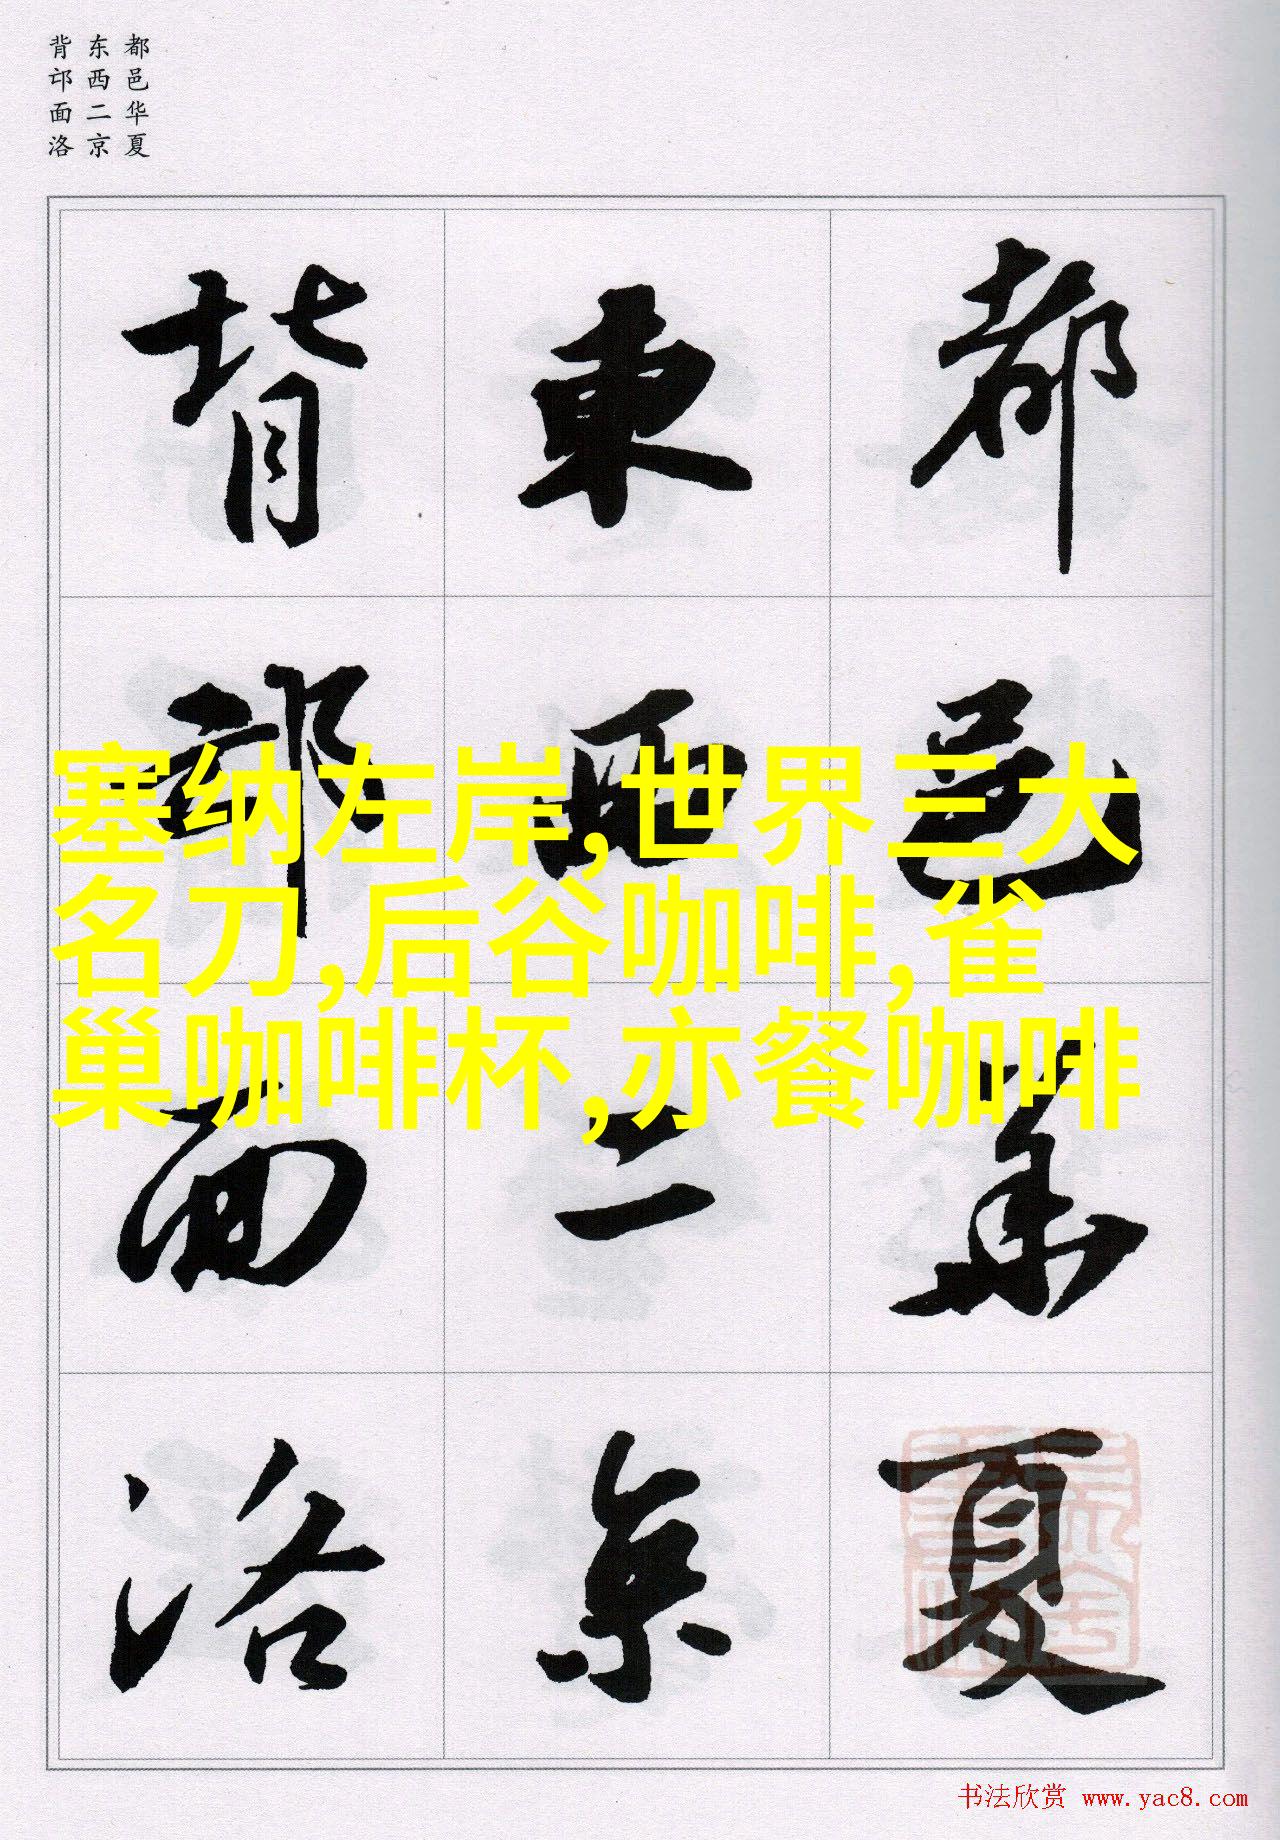 都邑华夏
东西二京
背邙面洛
都邑華夏
東西二京
背邙面洛
塞纳左岸,世界三大
名刀,后谷咖啡,雀
巢咖啡杯,亦餐咖啡
书法欣赏 www.yac8.com